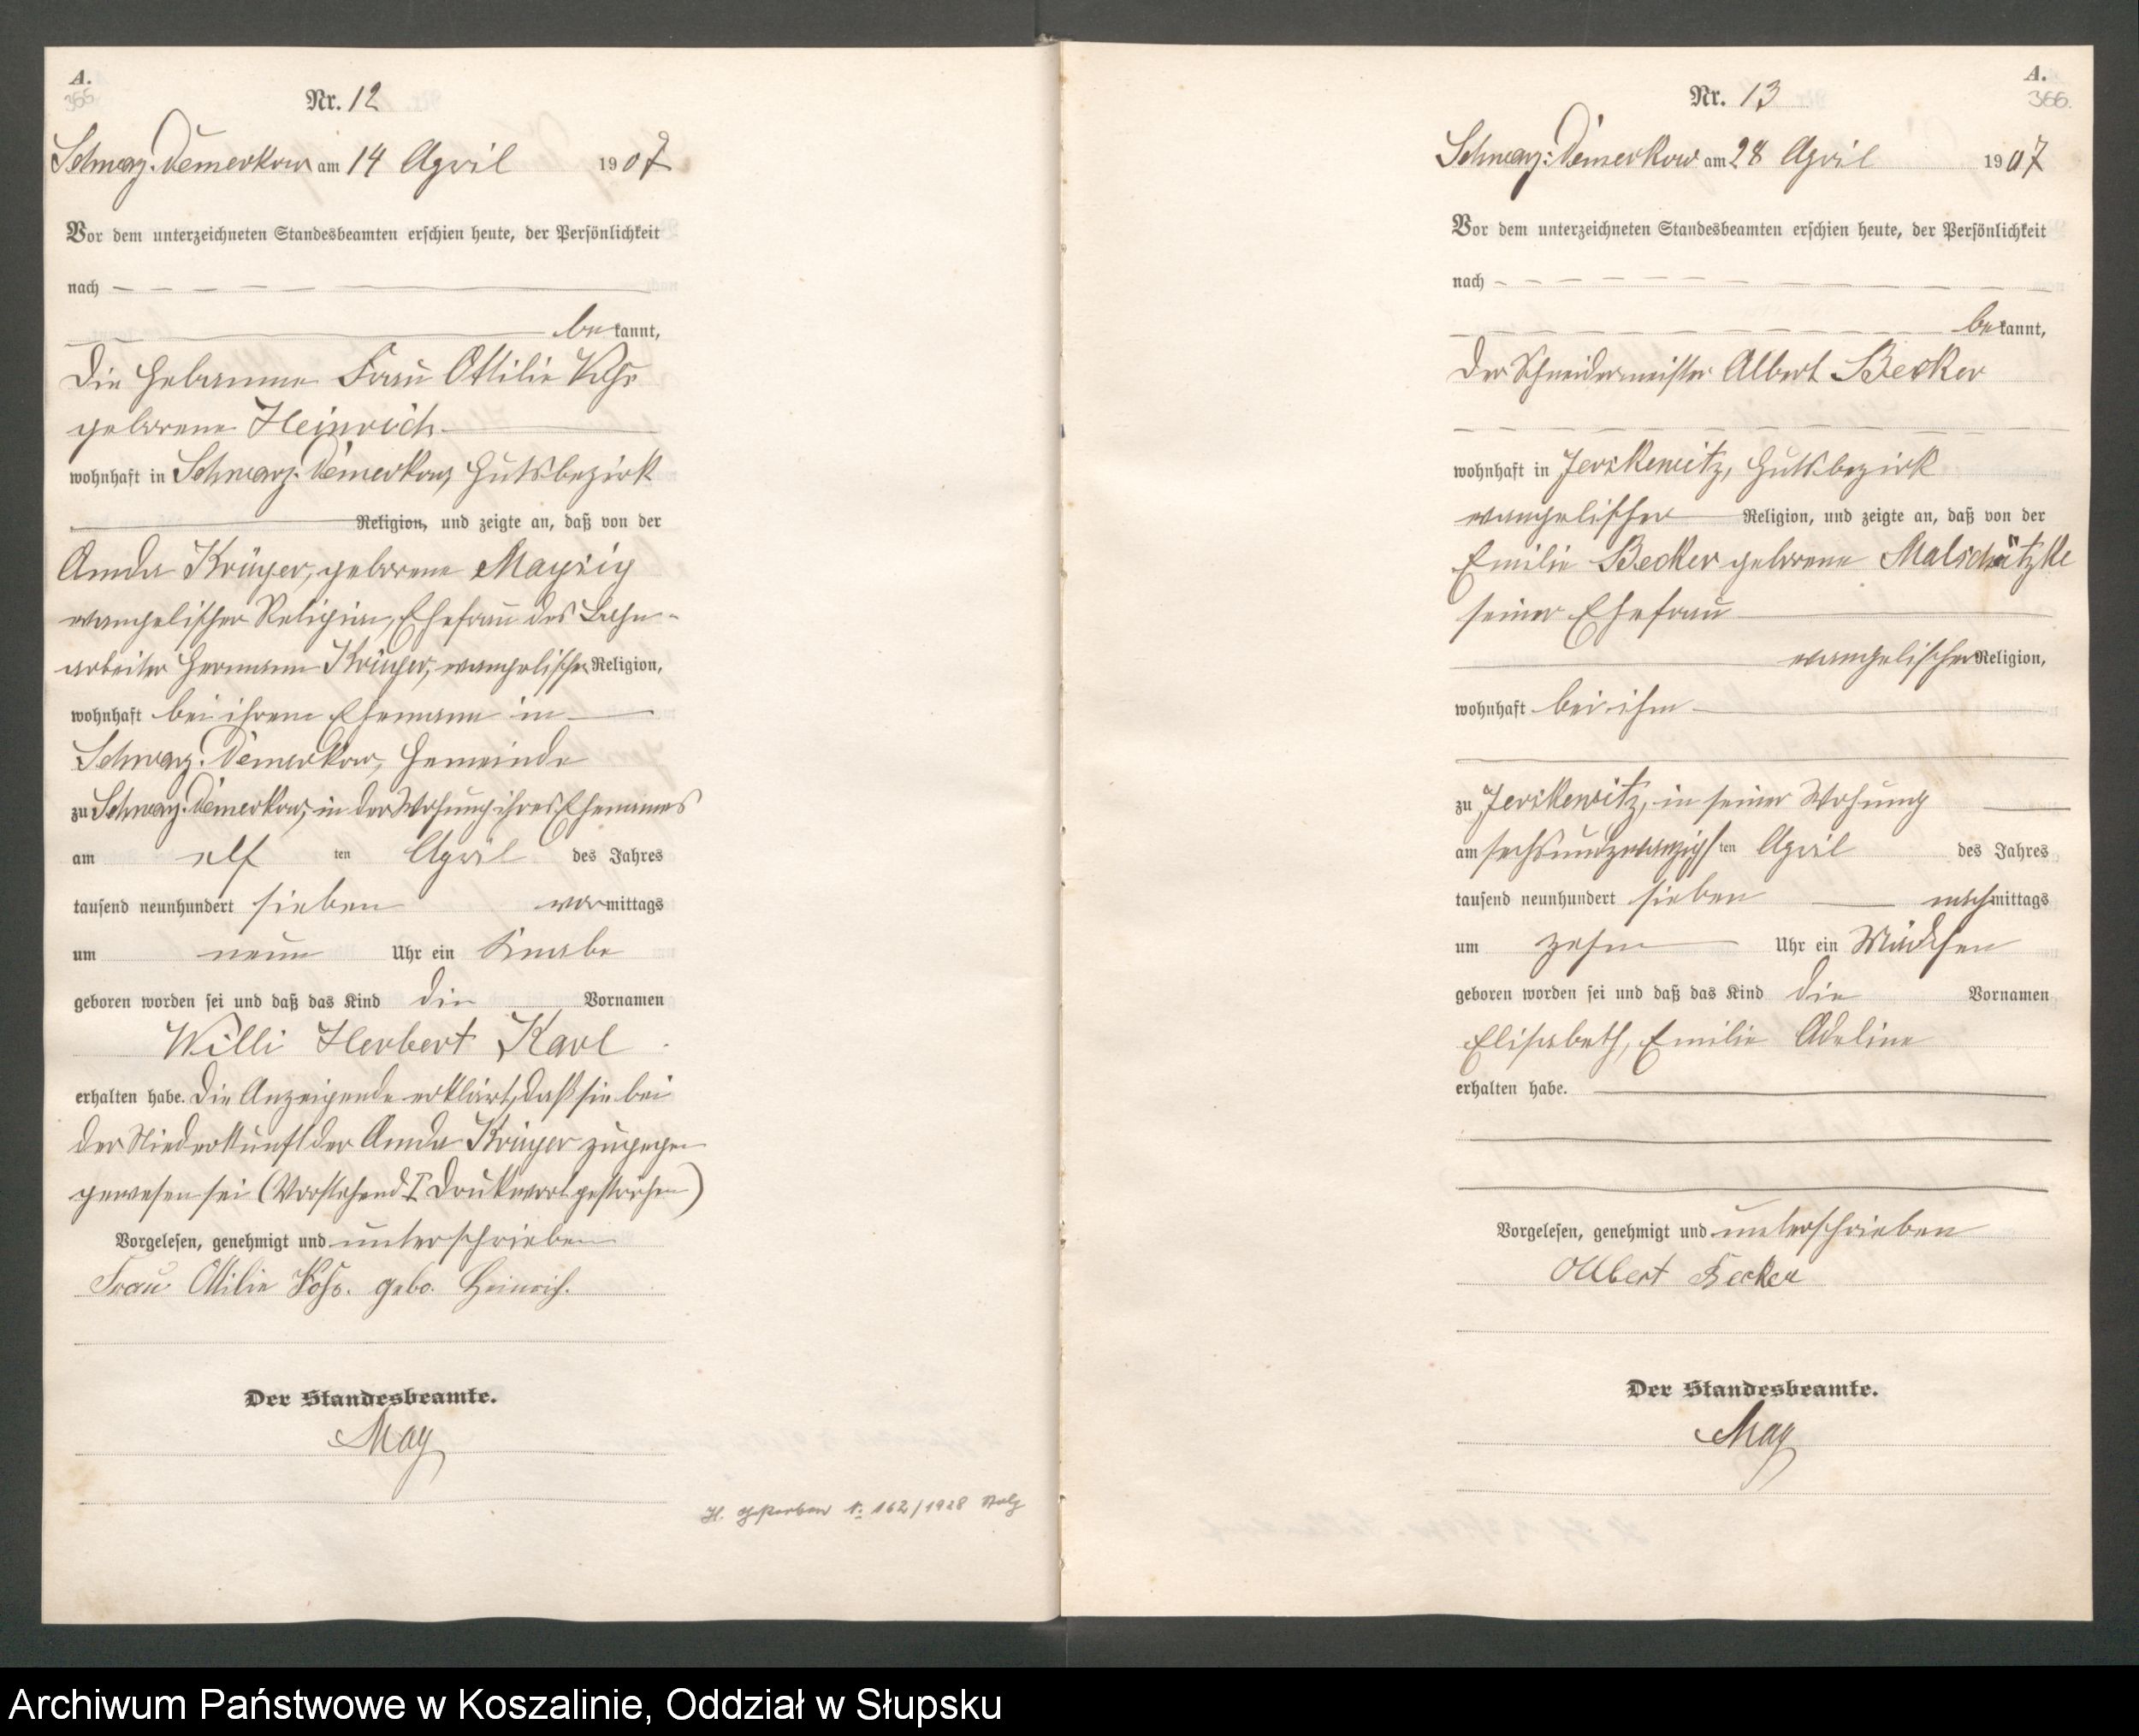 A.
355
Nr. 12
Schwarz-Damerkow am 14 April 1907
Vor dem unterzeichneten Standesbeamten erschien heute, der Persönlichkeit
nach
bekannt,
die Hebamme Frau Ottilie
geborene Heinrich
wohnhaft in Schwarz-Damerkow, Gutsbezirk
Religion, und zeigte an, daß von der
Krüger, geborene
evangelischer Religion, Ehefrau des Bahn-
arbeiter Hermann Krüger, evangelischer Religion,
wohnhaft bei ihrem Ehemann in
Schwarz-Damerkow, Gemeinde
zu Schwarz-Damerkow, in der Wohung ihres Ehemannes
am elf ten April des Jahres
tausend neunhundert sieben vormittags
um neun Uhr ein Knabe
geboren worden sei und daß das Kind die Vornamen
Willi Herbert Karl
erhalten habe. Die Anzeigende erklärt, daß sie bei
der Niederkunft der Krüger zugegen
gewesen sei (Vorstehend 1 Druckwort gestrichen)
Vorgelesen, genehmigt und unterschrieben
Frau Ottilie gebo. Heinrich.
Der Standesbeamte.
May
H. gestorben N: 162/1928 Stolp
A.
366.
Nr. 13
Schwarz-Damerkow am 28 April 1907
Vor dem unterzeichneten Standesbeamten erschien heute, der Persönlichkeit
nach
bekannt,
der Schneidermeister Albert Becker
wohnhaft in Jerskewitz, Gutsbezirk
evangelischer Religion, und zeigte an, daß von der
Emilie Becker geborene Malschützke
seiner Ehefrau
evangelischer Religion,
wohnhaft bei ihm
zu Jerskewitz, in seiner Wohung
am sechsundzwanzigsten April des Jahres
tausend neunhundert sieben nachmittags
um zehn Uhr ein Mädchen
geboren worden sei und daß das Kind die Vornamen
Elisabeth, Emilie Adeline
erhalten habe.
Vorgelesen, genehmigt und unterschrieben
Albert Becker
Der Standesbeamte.
May
Archiwum Państwowe w Koszalinie, Oddział w Słupsku